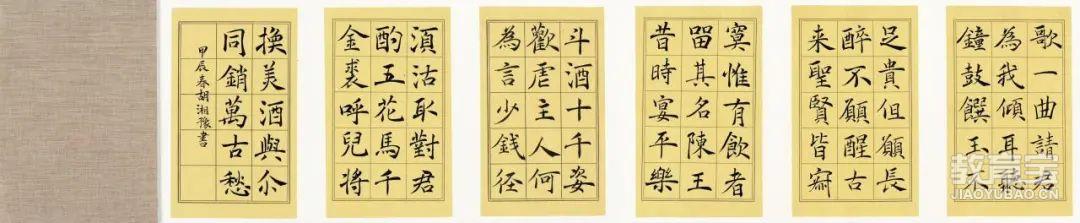 歌一曲請君
為我傾耳聽
鐘鼓饌玉不
足貴但願長
醉不願醒古
来聖賢皆寂
寞惟有飲者
留其名陳王
昔時宴平樂
斗酒十千姿
歡虐主人何
為言少錢径
湏沽取對君
酌五花馬千
金裘呼兒將
換美酒與尒
同銷萬古愁
甲辰春胡湘豫書
教育宝
JIAOYUBAO.CN